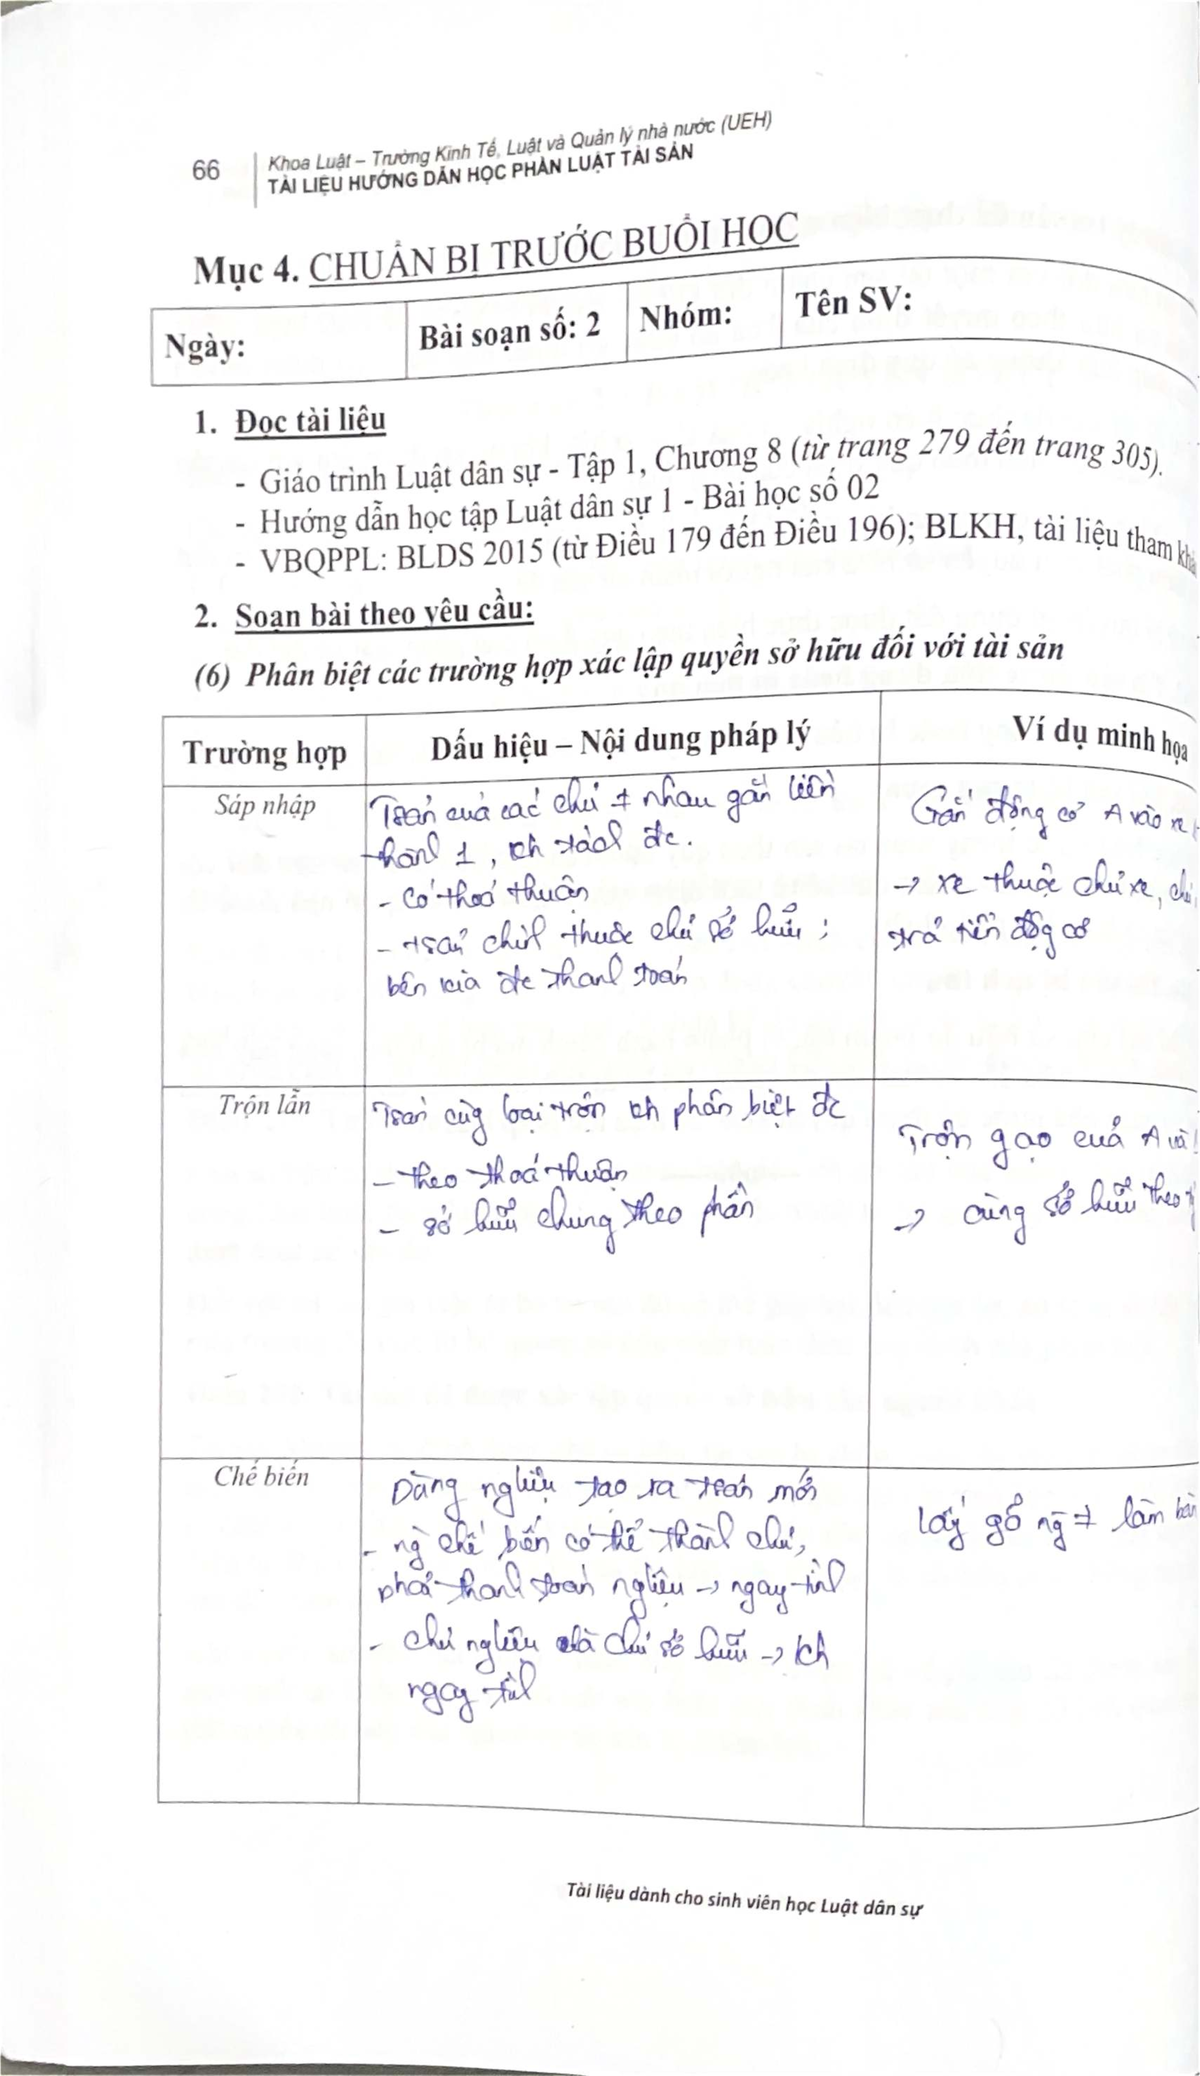 66
Khoa Luật – Trường Kinh Tế, Luật và Quản lý nhà nước (UEH)
TÀI LIỆU HƯỚNG DẪN HỌC PHẦN LUẬT TÀI SẢN
Mục 4. CHUẨN BỊ TRƯỚC BUỔI HỌC
Ngày: Bài soạn số: 2 Nhóm: Tên SV:
1. Đọc tài liệu
- Giáo trình Luật dân sự - Tập 1, Chương 8 (từ trang 279 đến trang 305).
- Hướng dẫn học tập Luật dân sự 1 - Bài học số 02
- VBQPPL: BLDS 2015 (từ Điều 179 đến Điều 196); BLKH, tài liệu tham
2. Soạn bài theo yêu cầu:
(6) Phân biệt các trường hợp xác lập quyền sở hữu đối với tài sản
Trường hợp Dấu hiệu – Nội dung pháp lý Ví dụ minh họa
Sáp nhập
Tsản của các chủ ≠ nhau gắn liền
thành 1, kh tách đc.
- Có thoả thuận
- tsản chính thuộc chủ sở hữu;
bên kia đc thanh toán
Gắn động cơ A vào xe
→ xe thuộc chủ xe,
trả tiền động cơ
Trộn lẫn
Tsản cùg loại trộn kh phân biệt đc
- theo thoả thuận
- sở hữu chung theo phần
Trộn gạo của A và
→ cùng sở hữu theo
Chế biến
Dùng nghliệu tạo ra tsản mới
- ng chế biến có thể thành chủ,
phải thanh toán nghliệu → ngay tình
- chủ nghliệu là chủ sở hữu → kh
ngay tình
Lấy gỗ ng ≠ làm bàn
Tài liệu dành cho sinh viên học Luật dân sự